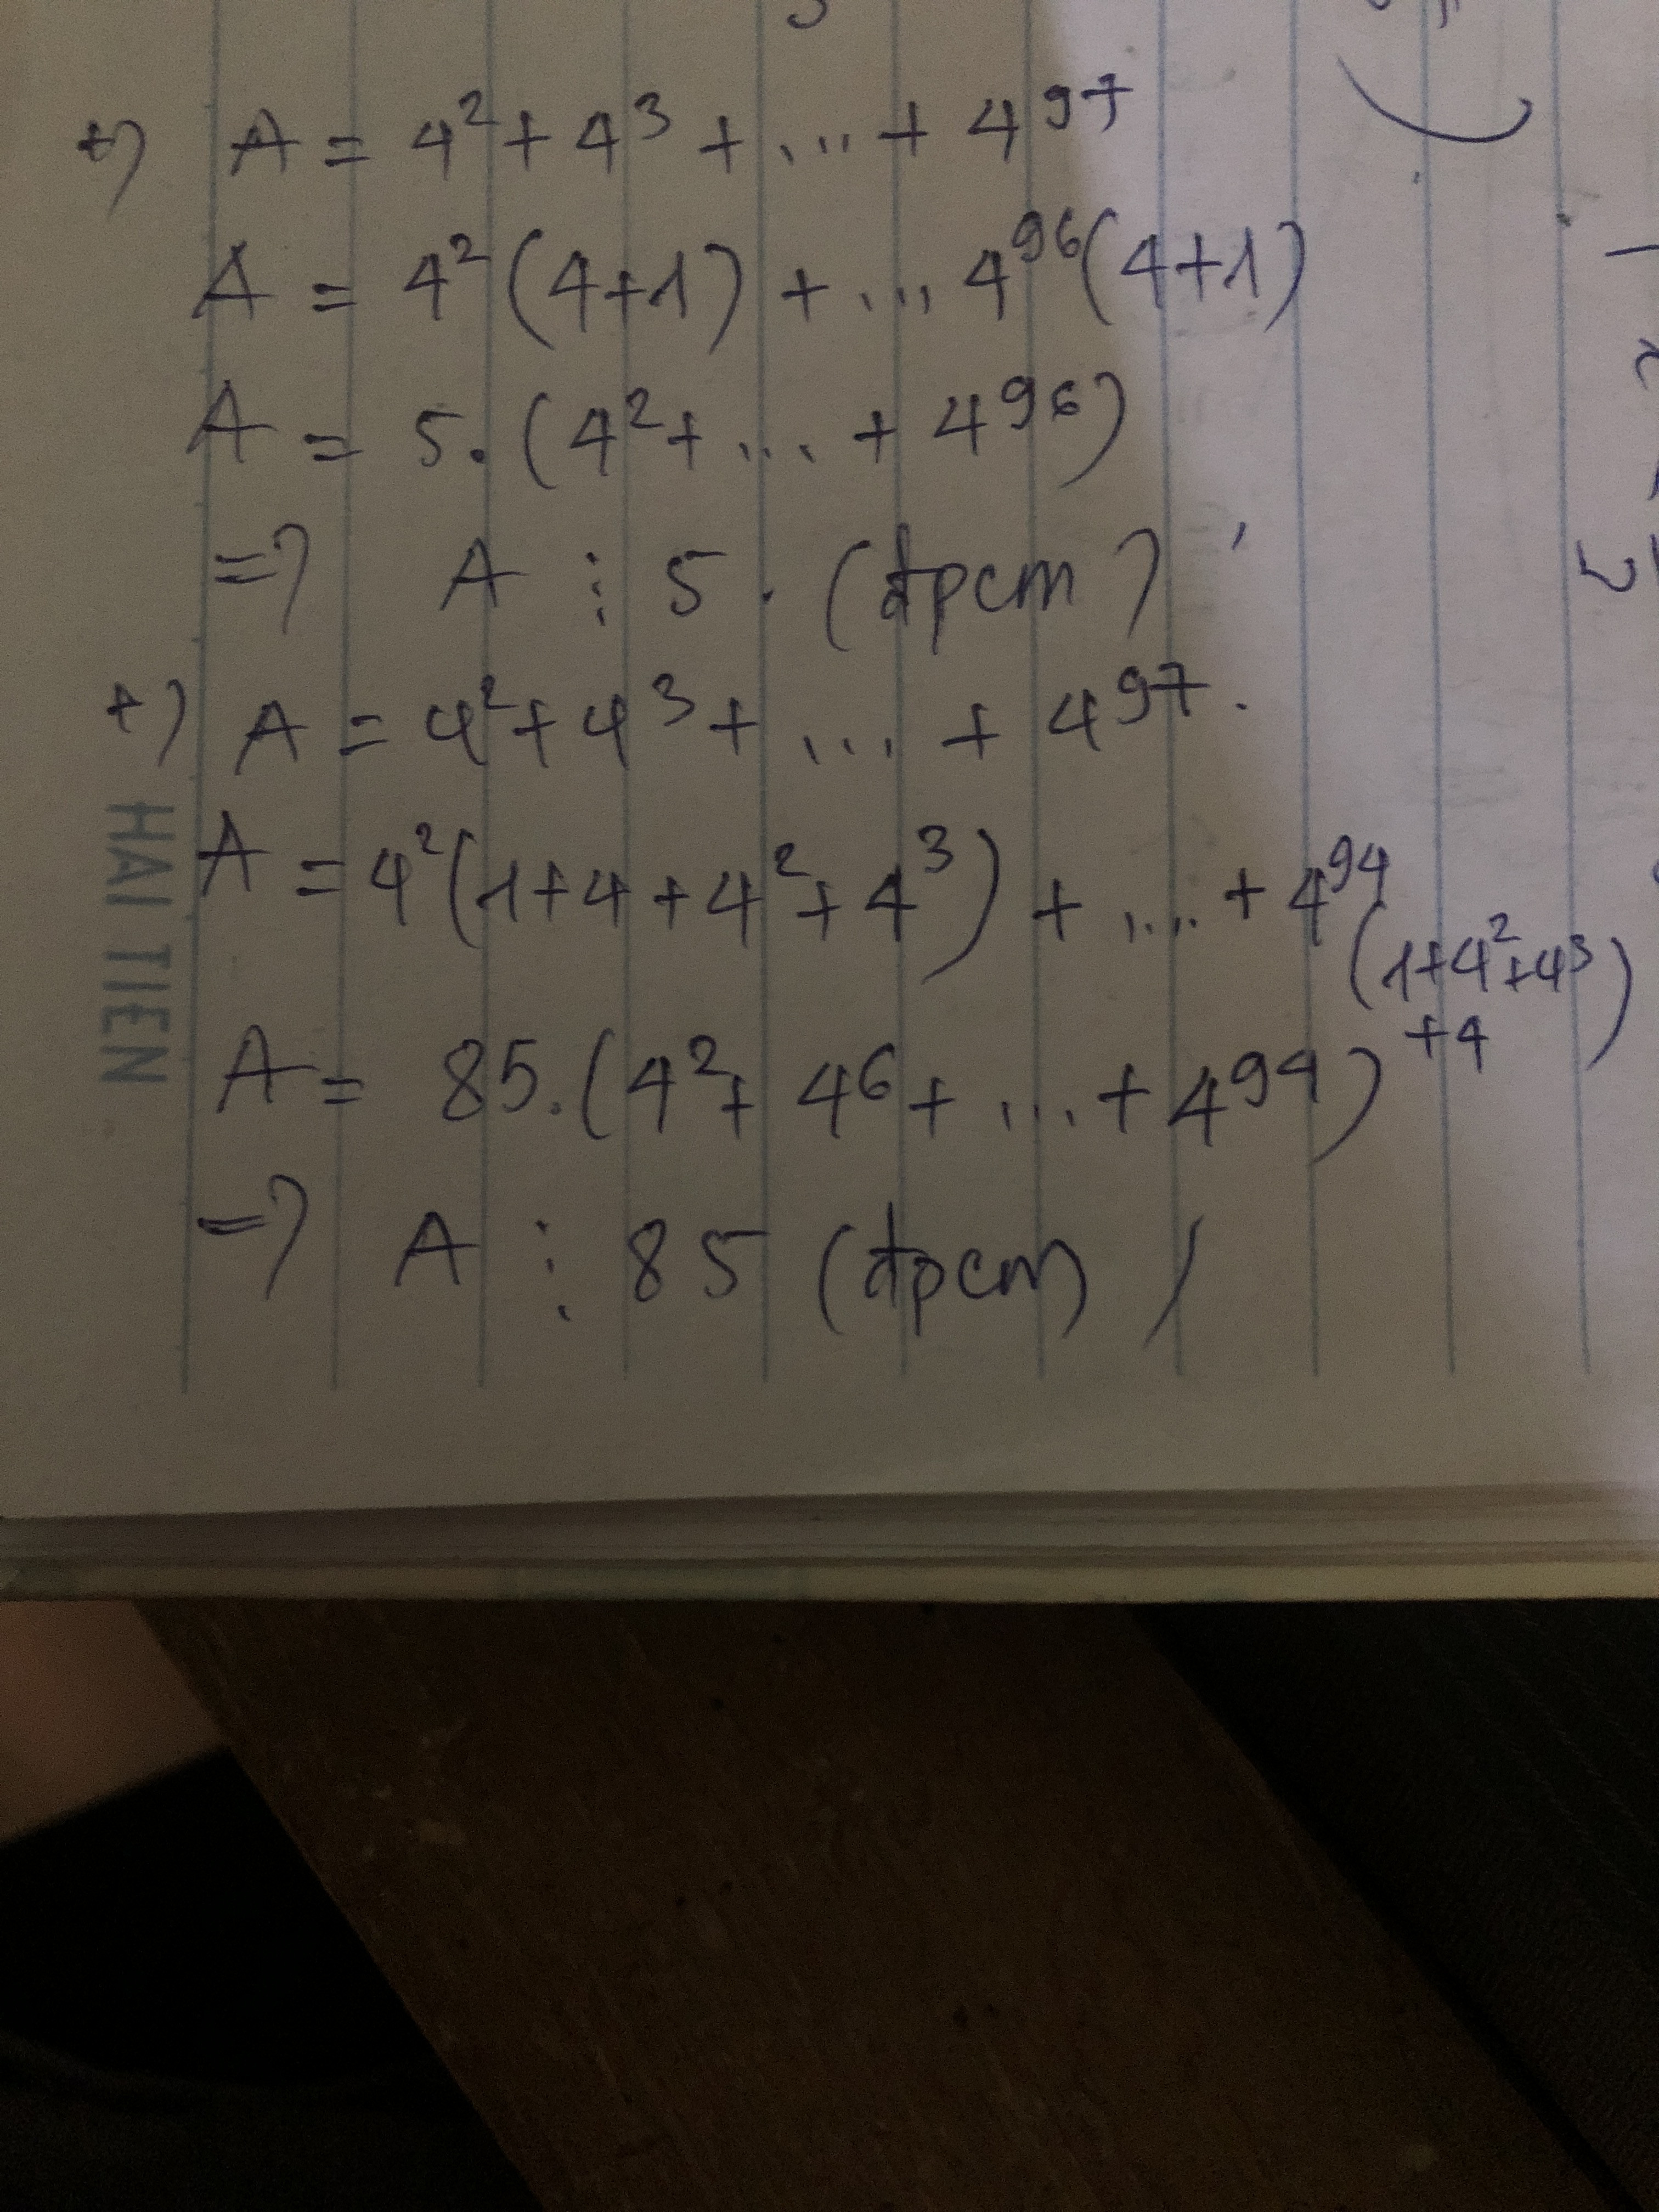 +) A = 4² + 4³ + ... + 4⁹⁷
A = 4² (4+1) + ... 4⁹⁶ (4+1)
A = 5. (4² + ... + 4⁹⁶)
=> A ⋮ 5. (đpcm)
+) A = 4² + 4³ + ... + 4⁹⁷.
A = 4² (1+4+4²+4³) + ... + 4⁹⁴
(1+4²+4³)
+4
A = 85. (4² + 4⁶ + ... + 4⁹⁴)
=> A ⋮ 85 (đpcm)
HAI TIEN